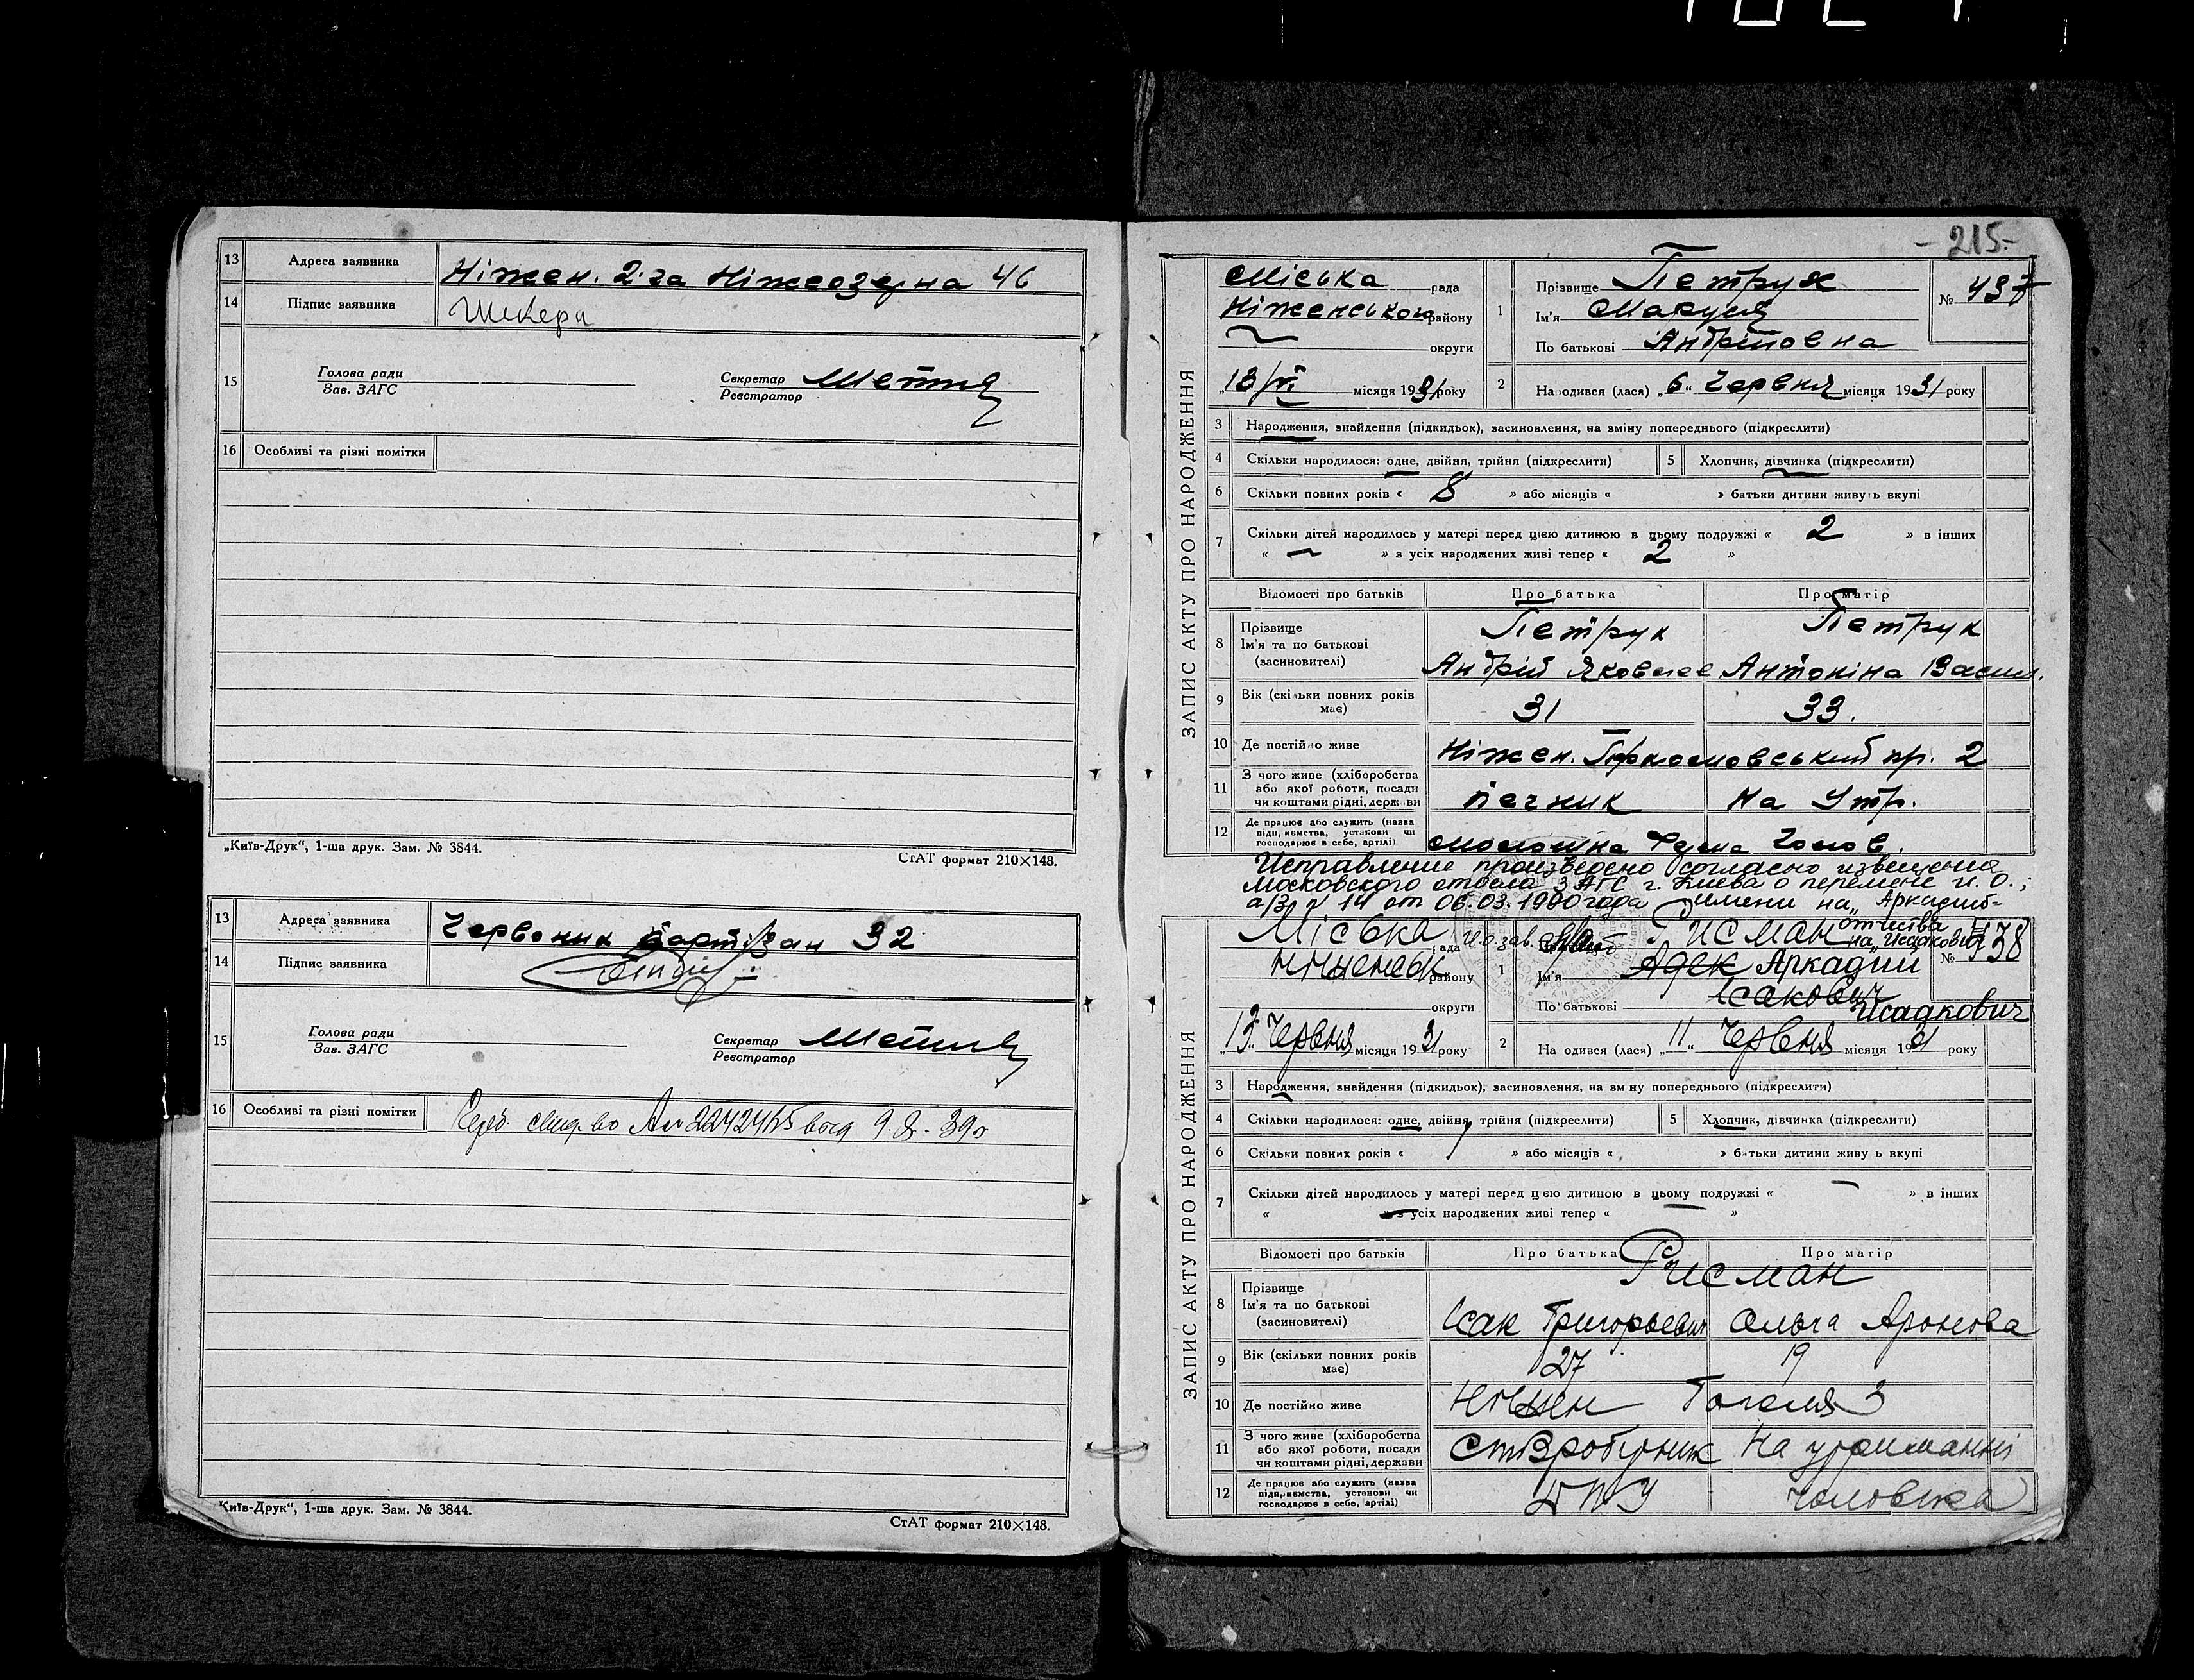 13 Адреса заявника Ніжен. 2-га 46
14 Підпис заявника
15 Голова ради
Зав. ЗАГС
Секретар
Реєстратор
16 Особливі та різні помітки
„Київ-Друк“, 1-ша друк. Зам. № 3844.
СтАТ формат 210×148.
13 Адреса заявника Червоних партізан 32
14 Підпис заявника
15 Голова ради
Зав. ЗАГС
Секретар
Реєстратор
16 Особливі та різні помітки 9.8.39
Київ-Друк“, 1-ша друк. Зам. № 3844.
СтАТ формат 210×148.
-215-
ЗАПИС АКТУ ПРО НАРОДЖЕННЯ
Міська рада
Ніженського району
округи
1 Прізвище Петрук
Ім'я Маруся
По батькові Андріївна
№ 437
„13/VI місяця 1931 року
2 Народився (лася) „6“ Червня місяця 1931 року
3 Народження, знайдення (підкидьок), засиновлення, на зміну попереднього (підкреслити)
4 Скільки народилося: одне, двійня, трійня (підкреслити) 5 Хлопчик, дівчинка (підкреслити)
6 Скільки повних років « 8 » або місяців « » батьки дитини живуть вкупі
7 Скільки дітей народилось у матері перед цією дитиною в цьому подружжі « 2 » в інших
« — » з усіх народжених живі тепер « 2 »
Відомості про батьків Про батька Про матір
8 Прізвище Петрук Петрук
Ім'я та по батькові
(засиновителі) Андрій Яковлев Антоніна Васил.
9 Вік (скільки повних років має) 31 33.
10 Де постійно живе Ніжен. пр. 2
11 З чого живе (хліборобства
або якої роботи, посади
чи коштами рідні, держави печник На Утр.
12 Де працює або служить (назва
підприємства, установи чи
господарює в себе, артілі) Чолов.
Исправление произведено согласно извещения
Московского отдела ЗАГС г. Киева о перемене и. о.;
а/з № 14 от 06.03.1980 года имени на „Аркадий“
отчества
на „Исаакович“
И.о. зав.
ЗАПИС АКТУ ПРО НАРОДЖЕННЯ
Міська рада
району
округи
1 Рисман
Ім'я Адек Аркадий
По батькові Ісакович
Исаакович
№ 438
„13“ Червня місяця 1931 року
2 Народився (лася) „11“ Червня місяця 1931 року
3 Народження, знайдення (підкидьок), засиновлення, на зміну попереднього (підкреслити)
4 Скільки народилося: одне, двійня, трійня (підкреслити) 5 Хлопчик, дівчинка (підкреслити)
6 Скільки повних років « 1 » або місяців « » батьки дитини живуть вкупі
7 Скільки дітей народилось у матері перед цією дитиною в цьому подружжі « — » в інших
« — » з усіх народжених живі тепер « — »
Відомості про батьків Про батька Про матір
8 Прізвище Рисман
Ім'я та по батькові
(засиновителі) Ісак Григорьевич Ольга Аронова
9 Вік (скільки повних років має) 27 19
10 Де постійно живе Ніжен Гоголя 3
11 З чого живе (хліборобства
або якої роботи, посади
чи коштами рідні, держави Співробітник На утриманні
12 Де працює або служить (назва
підприємства, установи чи
господарює в себе, артілі) ДПУ чоловіка